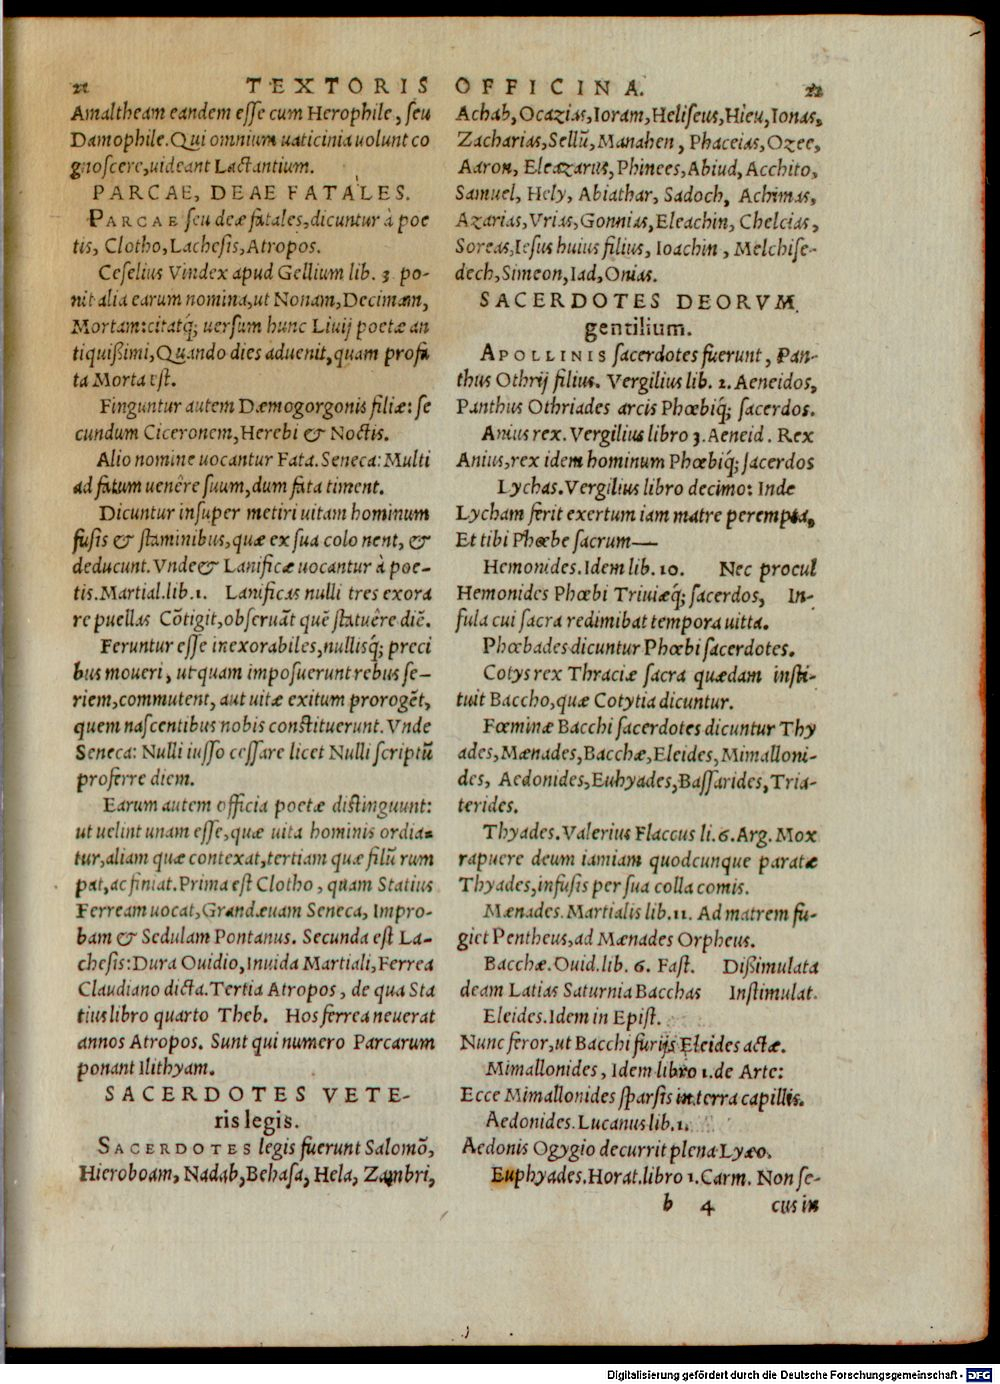 21 TEXTORIS OFFICINA. 22
Amaltheam eandem esse cum Herophile, seu
Damophile. Qui omnium uaticinia uolunt co
gnoscere, uideant Lactantium.
PARCAE, DEAE FATALES.
PARCAE seu deæ fatales, dicuntur à poe
tis, Clotho, Lachesis, Atropos.
Ceselius Vindex apud Gellium lib. 3 po-
nit alia earum nomina, ut Nonam, Decimam,
Mortam: citatq́; uersum hunc Liuij poetæ an
tiquißimi, Quando dies aduenit, quam profa
ta Morta est.
Finguntur autem Dæmogorgonis filiæ: se
cundum Ciceronem, Herebi & Noctis.
Alio nomine uocantur Fata. Seneca: Multi
ad fatum uenêre suum, dum fata timent.
Dicuntur insuper metiri uitam hominum
fusis & staminibus, quæ ex sua colo nent, &
deducunt. Vnde & Lanificæ uocantur à poe-
tis. Martial. lib. 1. Lanificas nulli tres exora
re puellas Cõtigit, obseruãt quẽ statuêre diẽ.
Feruntur esse inexorabiles, nullisq́; preci
bus moueri, ut quam imposuerunt rebus se-
riem, commutent, aut uitæ exitum prorogẽt,
quem nascentibus nobis constituerunt. Vnde
Seneca: Nulli iusso cessare licet Nulli scriptũ
proferre diem.
Earum autem officia poetæ distinguunt:
ut uelint unam esse, quæ uita hominis ordia-
tur, aliam quæ contexat, tertiam quæ filũ rum
pat, ac finiat. Prima est Clotho, quam Statius
Ferream uocat, Grandæuam Seneca, Impro-
bam & Sedulam Pontanus. Secunda est La-
chesis: Dura Ouidio, Inuida Martiali, Ferrea
Claudiano dicta. Tertia Atropos, de qua Sta
tius libro quarto Theb. Hos ferrea neuerat
annos Atropos. Sunt qui numero Parcarum
ponant Ilithyam.
SACERDOTES VETE-
ris legis.
SACERDOTES legis fuerunt Salomõ,
Hieroboam, Nadab, Behasa, Hela, Zambri,
Achab, Ocazias, Ioram, Heliseus, Hieu, Ionas,
Zacharias, Sellũ, Manahen, Phaceias, Ozee,
Aaron, Eleazarus, Phinees, Abiud, Acchito,
Samuel, Hely, Abiathar, Sadoch, Achimas,
Azarias, Vrias, Gonnias, Eleachin, Chelcias,
Soreas, Iesus huius filius, Ioachin, Melchise-
dech, Simeon, Iad, Onias.
SACERDOTES DEORVM
gentilium.
APOLLINIS sacerdotes fuerunt, Pan-
thus Othrij filius. Vergilius lib. 2. Aeneidos,
Panthus Othriades arcis Phœbiq́; sacerdos.
Anius rex. Vergilius libro 3. Aeneid. Rex
Anius, rex idem hominum Phœbiq́; sacerdos
Lychas. Vergilius libro decimo: Inde
Lycham ferit exertum iam matre perempta,
Et tibi Phœbe sacrum—
Hemonides. Idem lib. 10. Nec procul
Hemonides Phœbi Triuiæq́; sacerdos, In-
fula cui sacra redimibat tempora uitta.
Phœbades dicuntur Phœbi sacerdotes.
Cotys rex Thraciæ sacra quædam insti-
tuit Baccho, quæ Cotytia dicuntur.
Fœminæ Bacchi sacerdotes dicuntur Thy
ades, Mænades, Bacchæ, Eleides, Mimalloni-
des, Aedonides, Euhyades, Bassarides, Tria-
terides.
Thyades. Valerius Flaccus li. 6. Arg. Mox
rapuere deum iamiam quodcunque paratæ
Thyades, infusis per sua colla comis.
Mænades. Martialis lib. 11. Ad matrem fu-
giet Pentheus, ad Mænades Orpheus.
Bacchæ. Ouid. lib. 6. Fast. Dißimulata
deam Latias Saturnia Bacchas Instimulat.
Eleides. Idem in Epist.
Nunc feror, ut Bacchi furijs Eleides actæ.
Mimallonides, Idem libro 1. de Arte:
Ecce Mimallonides sparsis in terra capillis.
Aedonides. Lucanus lib. 1.
Aedonis Ogygio decurrit plena Lyæo.
Euphyades. Horat. libro 1. Carm. Non se-
b 4 cus in
Digitalisierung gefördert durch die Deutsche Forschungsgemeinschaft - DFG